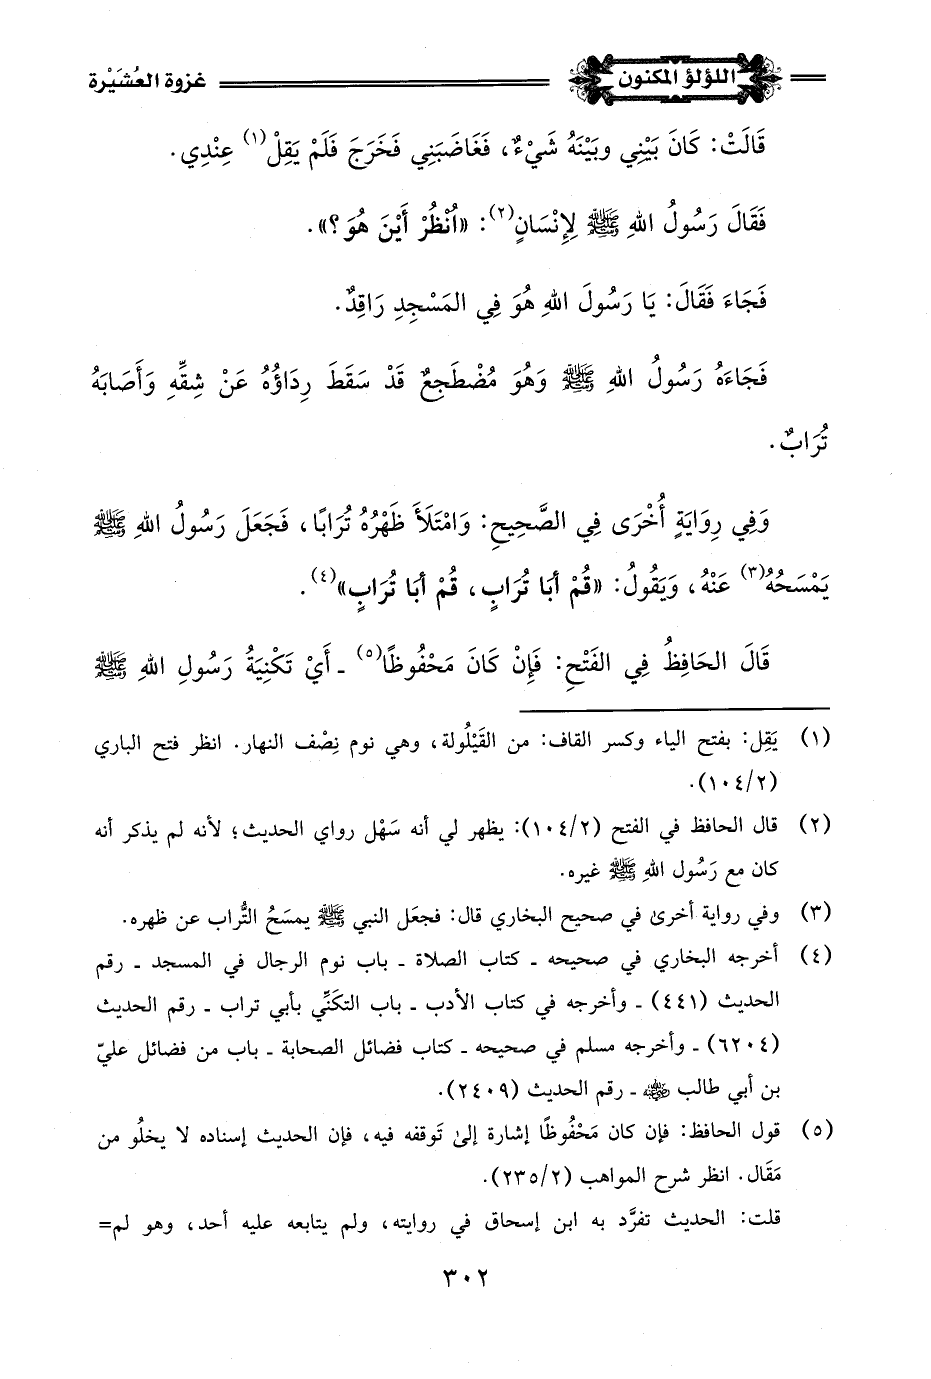 اللؤلؤ المكنون غزوة العُشَيْرة
قَالَتْ: كَانَ بَيْنِي وبَيْنَهُ شَيْءٌ، فَغَاضَبَنِي فَخَرَجَ فَلَمْ يَقِلْ(١) عِنْدِي.
فَقَالَ رَسُولُ اللهِ ﷺ لِإِنْسَانٍ(٢): «اُنْظُرْ أَيْنَ هُوَ؟».
فَجَاءَ فَقَالَ: يَا رَسُولَ اللهِ هُوَ فِي المَسْجِدِ رَاقِدٌ.
فَجَاءَهُ رَسُولُ اللهِ ﷺ وَهُوَ مُضْطَجِعٌ قَدْ سَقَطَ رِدَاؤُهُ عَنْ شِقِّهِ وَأَصَابَهُ
تُرَابٌ.
وَفِي رِوَايَةٍ أُخْرَى فِي الصَّحِيحِ: وَامْتَلَأَ ظَهْرُهُ تُرَابًا، فَجَعَلَ رَسُولُ اللهِ ﷺ
يَمْسَحُهُ(٣) عَنْهُ، وَيَقُولُ: «قُمْ أبَا تُرَابٍ، قُمْ أبَا تُرَابٍ»(٤).
قَالَ الحَافِظُ فِي الفَتْحِ: فَإِنْ كَانَ مَحْفُوظًا(٥) ـ أَيْ تَكْنِيَةُ رَسُولِ اللهِ ﷺ
(١) يَقِل: بفتح الياء وكسر القاف: من القَيْلُولة، وهي نوم نِصْف النهار. انظر فتح الباري
(١٠٤/٢).
(٢) قال الحافظ في الفتح (١٠٤/٢): يظهر لي أنه سَهْل رواي الحديث؛ لأنه لم يذكر أنه
كان مع رَسُول اللهِ ﷺ غيره.
(٣) وفي رواية أخرى في صحيح البخاري قال: فجعَل النبي ﷺ يمسَحُ التُّراب عن ظهره.
(٤) أخرجه البخاري في صحيحه ـ كتاب الصلاة ـ باب نوم الرجال في المسجد ـ رقم
الحديث (٤٤١) ـ وأخرجه في كتاب الأدب ـ باب التكَنِّي بأبي تراب ـ رقم الحديث
(٦٢٠٤) ـ وأخرجه مسلم في صحيحه ـ كتاب فضائل الصحابة ـ باب من فضائل عليّ
بن أبي طالب ﵁ ـ رقم الحديث (٢٤٠٩).
(٥) قول الحافظ: فإن كان مَحْفُوظًا إشارة إلى تَوقفه فيه، فإن الحديث إسناده لا يخلُو من
مَقَال. انظر شرح المواهب (٢٣٥/٢).
قلت: الحديث تفرَّد به ابن إسحاق في روايته، ولم يتابعه عليه أحد، وهو لم=
٣٠٢